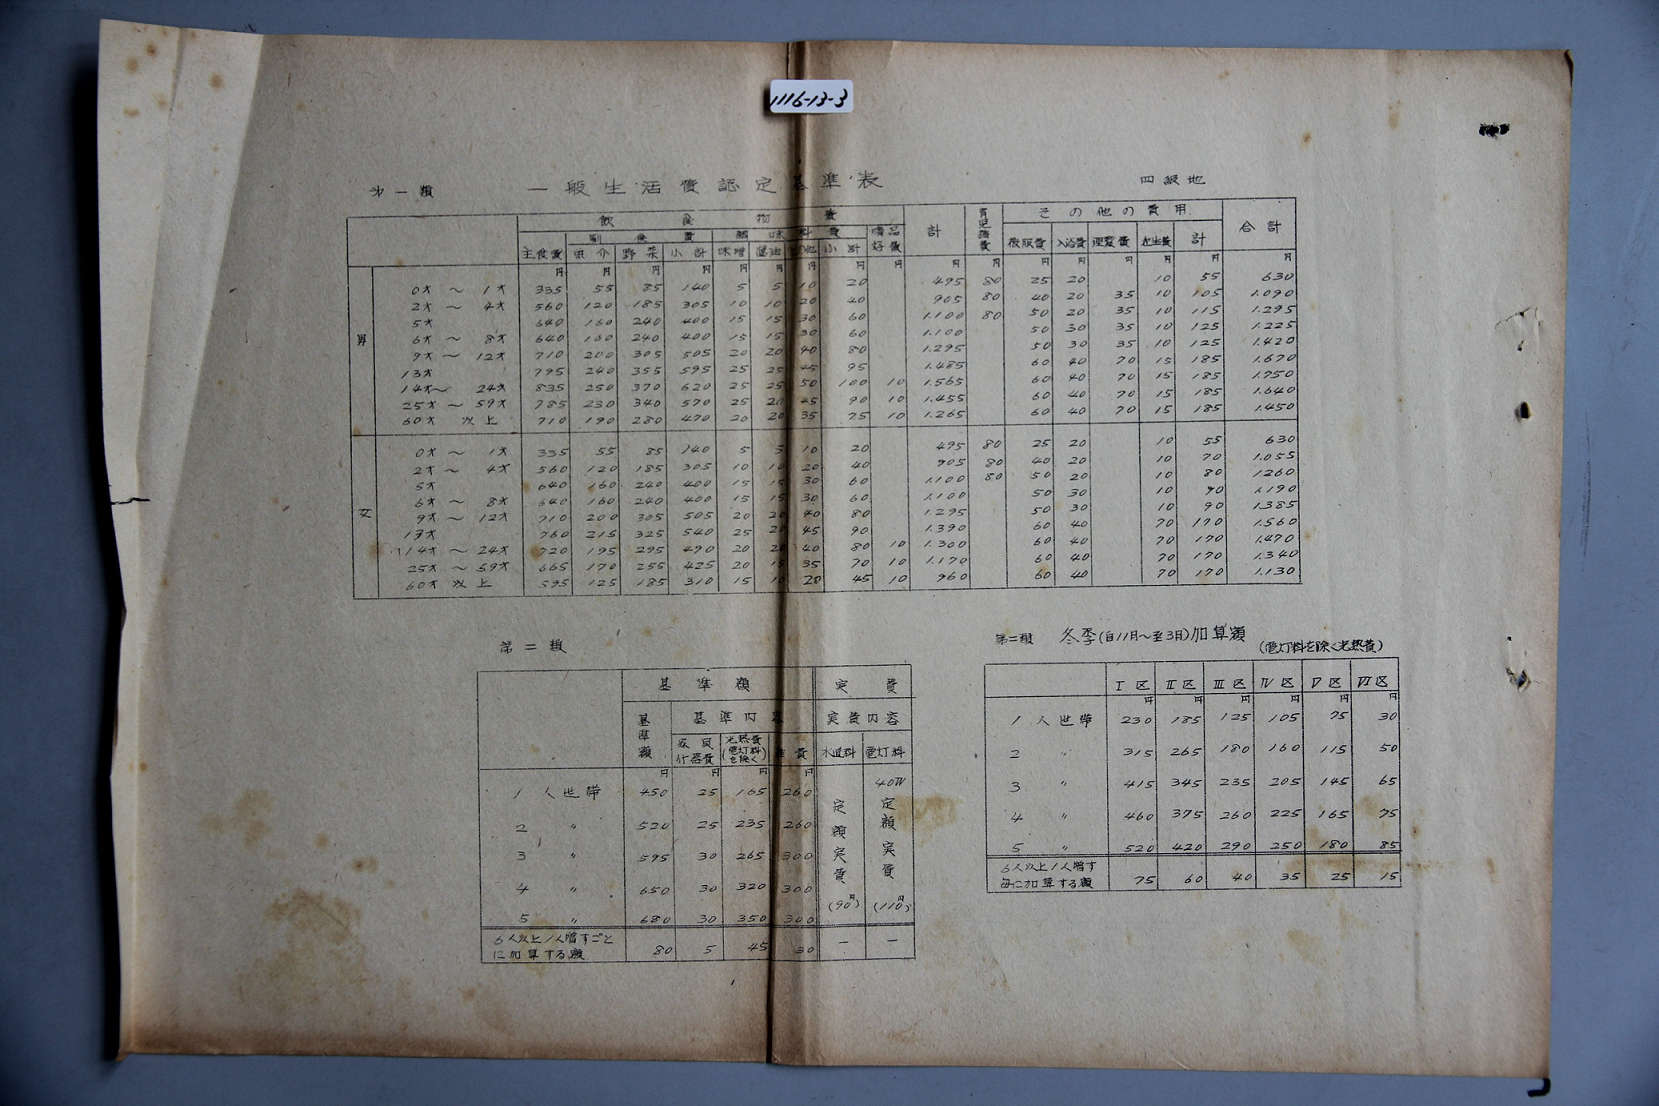 1116-13-3
第一類 一般生活費認定基準表 四級地
飲食物費 計 育児諸費 その他の費用 合計
副食費 調味料費 嗜好品費
主食費 魚介 野菜 小計 味噌 醤油 小計 被服費 入浴費 理髪費 衛生費 計
円 円 円 円 円 円 円 円 円 円 円 円 円 円 円 円 円
男
0才～1才 335 55 85 140 5 5 10 20 495 80 25 20 10 55 630
2才～4才 560 120 185 305 10 10 20 40 905 80 40 20 35 10 105 1.090
5才 640 160 240 400 15 15 30 60 1.100 80 50 20 35 10 115 1.295
6才～8才 640 160 240 400 15 15 30 60 1.100 50 30 35 10 125 1.225
9才～12才 710 200 305 505 20 20 40 80 1.295 50 30 35 10 125 1.420
13才 795 240 355 595 25 25 45 95 1.485 60 40 70 15 185 1.670
14才～24才 835 250 370 620 25 25 50 100 10 1.565 60 40 70 15 185 1.750
25才～59才 785 230 340 570 25 20 45 90 10 1.455 60 40 70 15 185 1.640
60才以上 710 190 280 470 20 20 35 75 10 1.265 60 40 70 15 185 1.450
女
0才～1才 335 55 85 140 5 5 10 20 495 80 25 20 10 55 630
2才～4才 560 120 185 305 10 10 20 40 905 80 40 20 10 70 1.055
5才 640 160 240 400 15 15 30 60 1.100 80 50 20 10 80 1260
6才～8才 640 160 240 400 15 15 30 60 1.100 50 30 10 90 1.190
9才～12才 710 200 305 505 20 20 40 80 1.295 50 30 10 90 1.385
13才 760 215 325 540 25 20 45 90 1.390 60 40 70 170 1.560
14才～24才 720 195 295 490 20 20 40 80 10 1.300 60 40 70 170 1.470
25才～59才 665 170 255 425 20 15 35 70 10 1.170 60 40 70 170 1.340
60才以上 595 125 185 310 15 10 20 45 10 960 60 40 70 170 1.130
第二類
基準額 実費
基準額 基準内容 実費内容
家具什器費 光熱費(電灯料を除く) 雑費 水道料 電灯料
円 円 円 円
1人世帯 450 25 165 260
2 〃 520 25 235 260
3 〃 595 30 265 300
4 〃 650 30 320 300
5 〃 680 30 350 300
定額実費 (90円)
40W 定額実費 (110円)
6人以上1人増すごとに加算する額 80 5 45 30 — —
第二類 冬季(自11月～至3月)加算額
(電灯料を除く光熱費)
I区 II区 III区 IV区 V区 VI区
円 円 円 円 円 円
1人世帯 230 185 125 105 75 30
2 〃 315 265 180 160 115 50
3 〃 415 345 235 205 145 65
4 〃 460 375 260 225 165 75
5 〃 520 420 290 250 180 85
6人以上1人増す
毎に加算する額 75 60 40 35 25 15